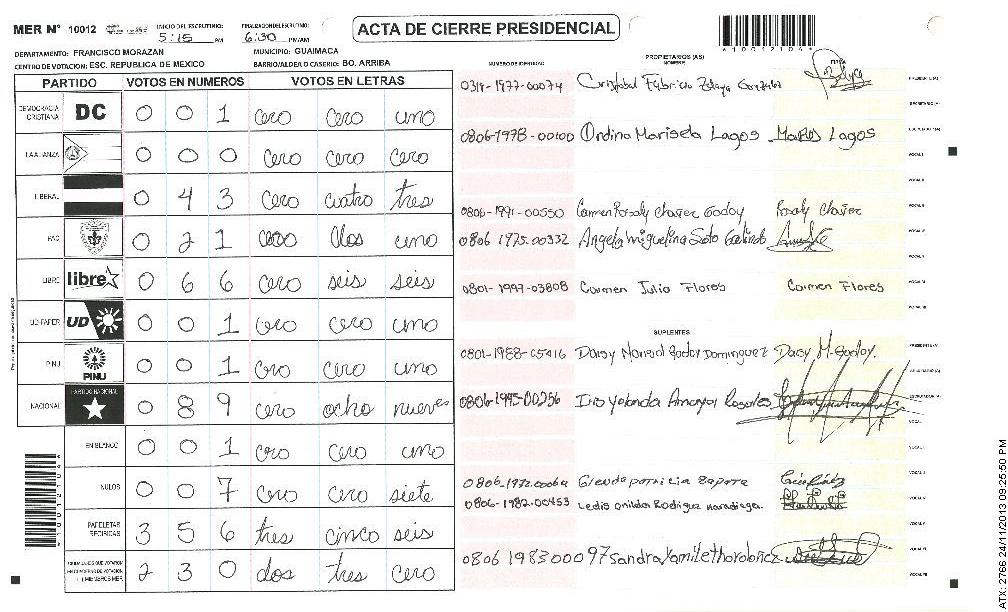 MER N° 10012 INICIO DEL ESCRUTINIO: 5:15 PM FINALIZACION DEL ESCRUTINIO: 6:30 PM/AM
ACTA DE CIERRE PRESIDENCIAL
DEPARTAMENTO: FRANCISCO MORAZAN MUNICIPIO: GUAIMACA
CENTRO DE VOTACION: ESC. REPUBLICA DE MEXICO BARRIO/ALDEA O CASERIO: BO. ARRIBA
PARTIDO VOTOS EN NUMEROS VOTOS EN LETRAS
DEMOCRACIA CRISTIANA DC 0 0 1 cero cero uno
LA ALIANZA 0 0 0 cero cero cero
LIBERAL 0 4 3 cero cuatro tres
PAC 0 2 1 cero dos uno
LIBRE libre 0 6 6 cero seis seis
UD-FAPER UD 0 0 1 cero cero uno
PINU PINU 0 0 1 cero cero uno
NACIONAL PARTIDO NACIONAL 0 8 9 cero ocho nueve
EN BLANCO 0 0 1 cero cero uno
NULOS 0 0 7 cero cero siete
PAPELETAS RECIBIDAS 3 5 6 tres cinco seis
CIUDADANOS QUE VOTARON (MIEMBROS MER) 2 3 0 dos tres cero
NUMERO DE IDENTIDAD PROPIETARIOS (AS) NOMBRE FIRMA
Cristobal Fabricio Zelaya PRESIDENTE (A)
SECRETARIO (A)
0806-1978-00100 Ondina Marisela Lagos Lagos ESCRUTADOR (A)
VOCAL I
VOCAL II
0806-1991-00550 Carmen Rosaly Chavez Godoy Rosaly Chavez
0806 1975.00332 Angela Miguelina Soto
0801-1997-03808 Carmen Julio Flores Carmen Flores
SUPLENTES
0801-1988-05416 Daisy Marisol Godoy Dominguez Daisy M. Godoy. PRESIDENTE (A)
0806-1995-00256 Iris Yolanda Amador Rosales ESCRUTADOR (A)
VOCAL I
Glenda patricia
0806-1982-00453 Ledis onilda Rodriguez
0806 1983 00097
ATX: 2766 24/11/2013 09:25:50 PM